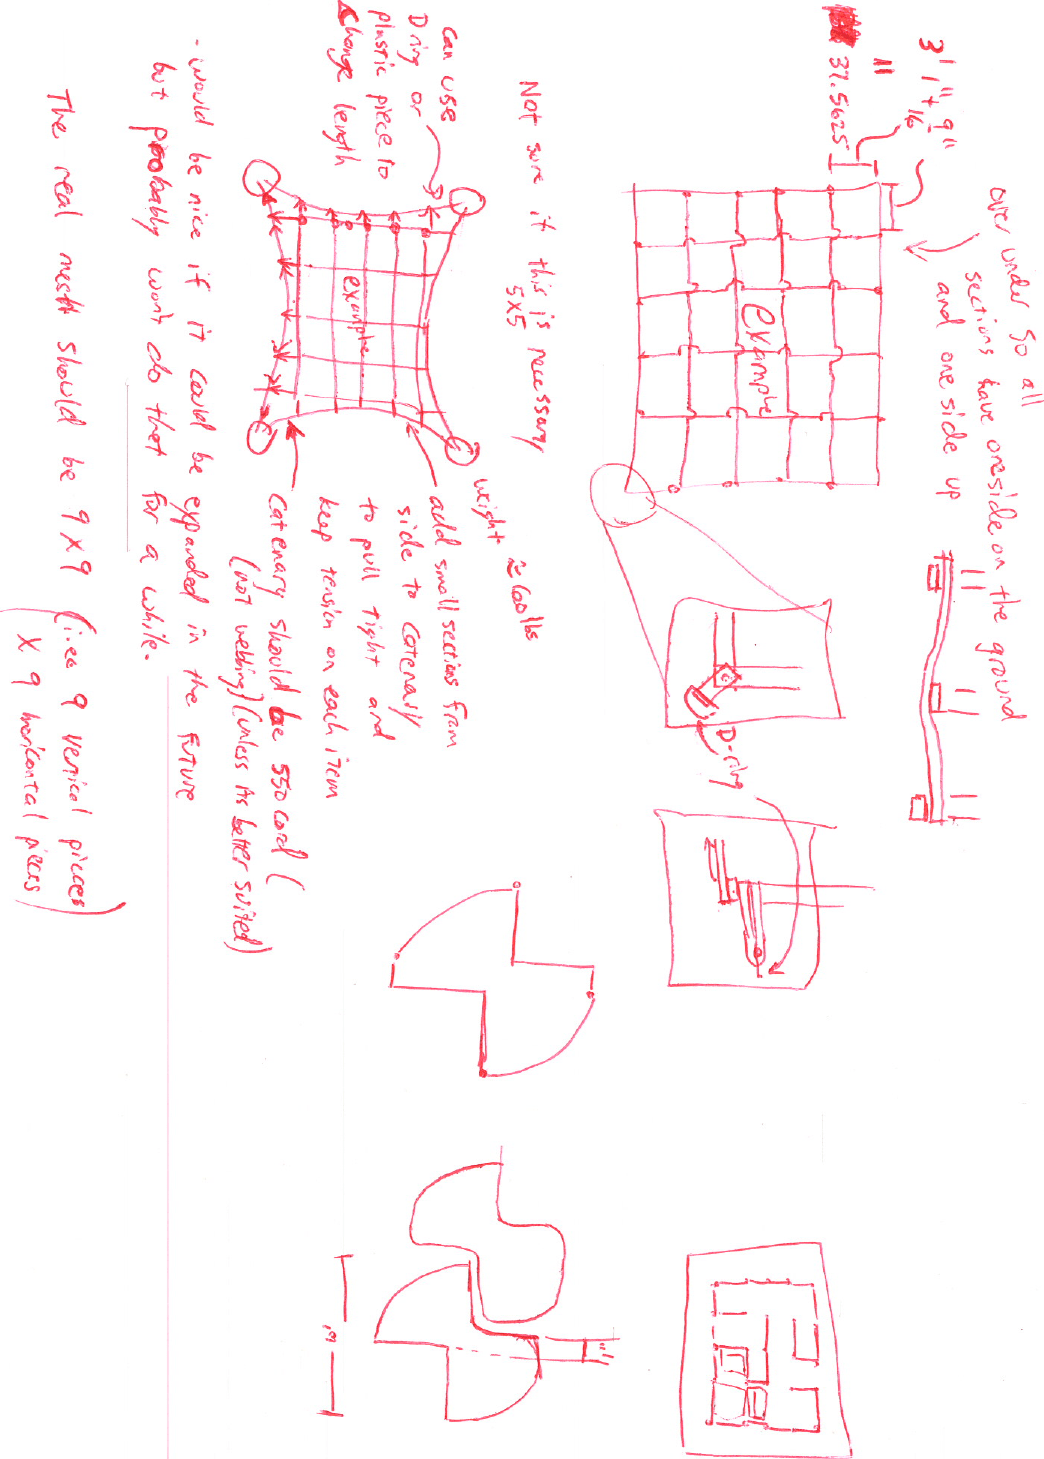 3' 1" + 9"
16
"
37.5625"
over under so all
sections have one side on the ground
and one side up
example
D-ring
Not sure if this is necessary
5x5
can use
D ring or
plastic piece to
change length
example
weight ≈ 600lbs
add small sections from
side to catenary
to pull tight and
keep tension on each item
catenary should be 550 cord (
(not webbing) (unless its better suited)
- would be nice if it could be expanded in the future
but probably won't do that for a while.
The real mesh should be 9x9 (i.e. 9 vertical pieces
x 9 horizontal pieces)